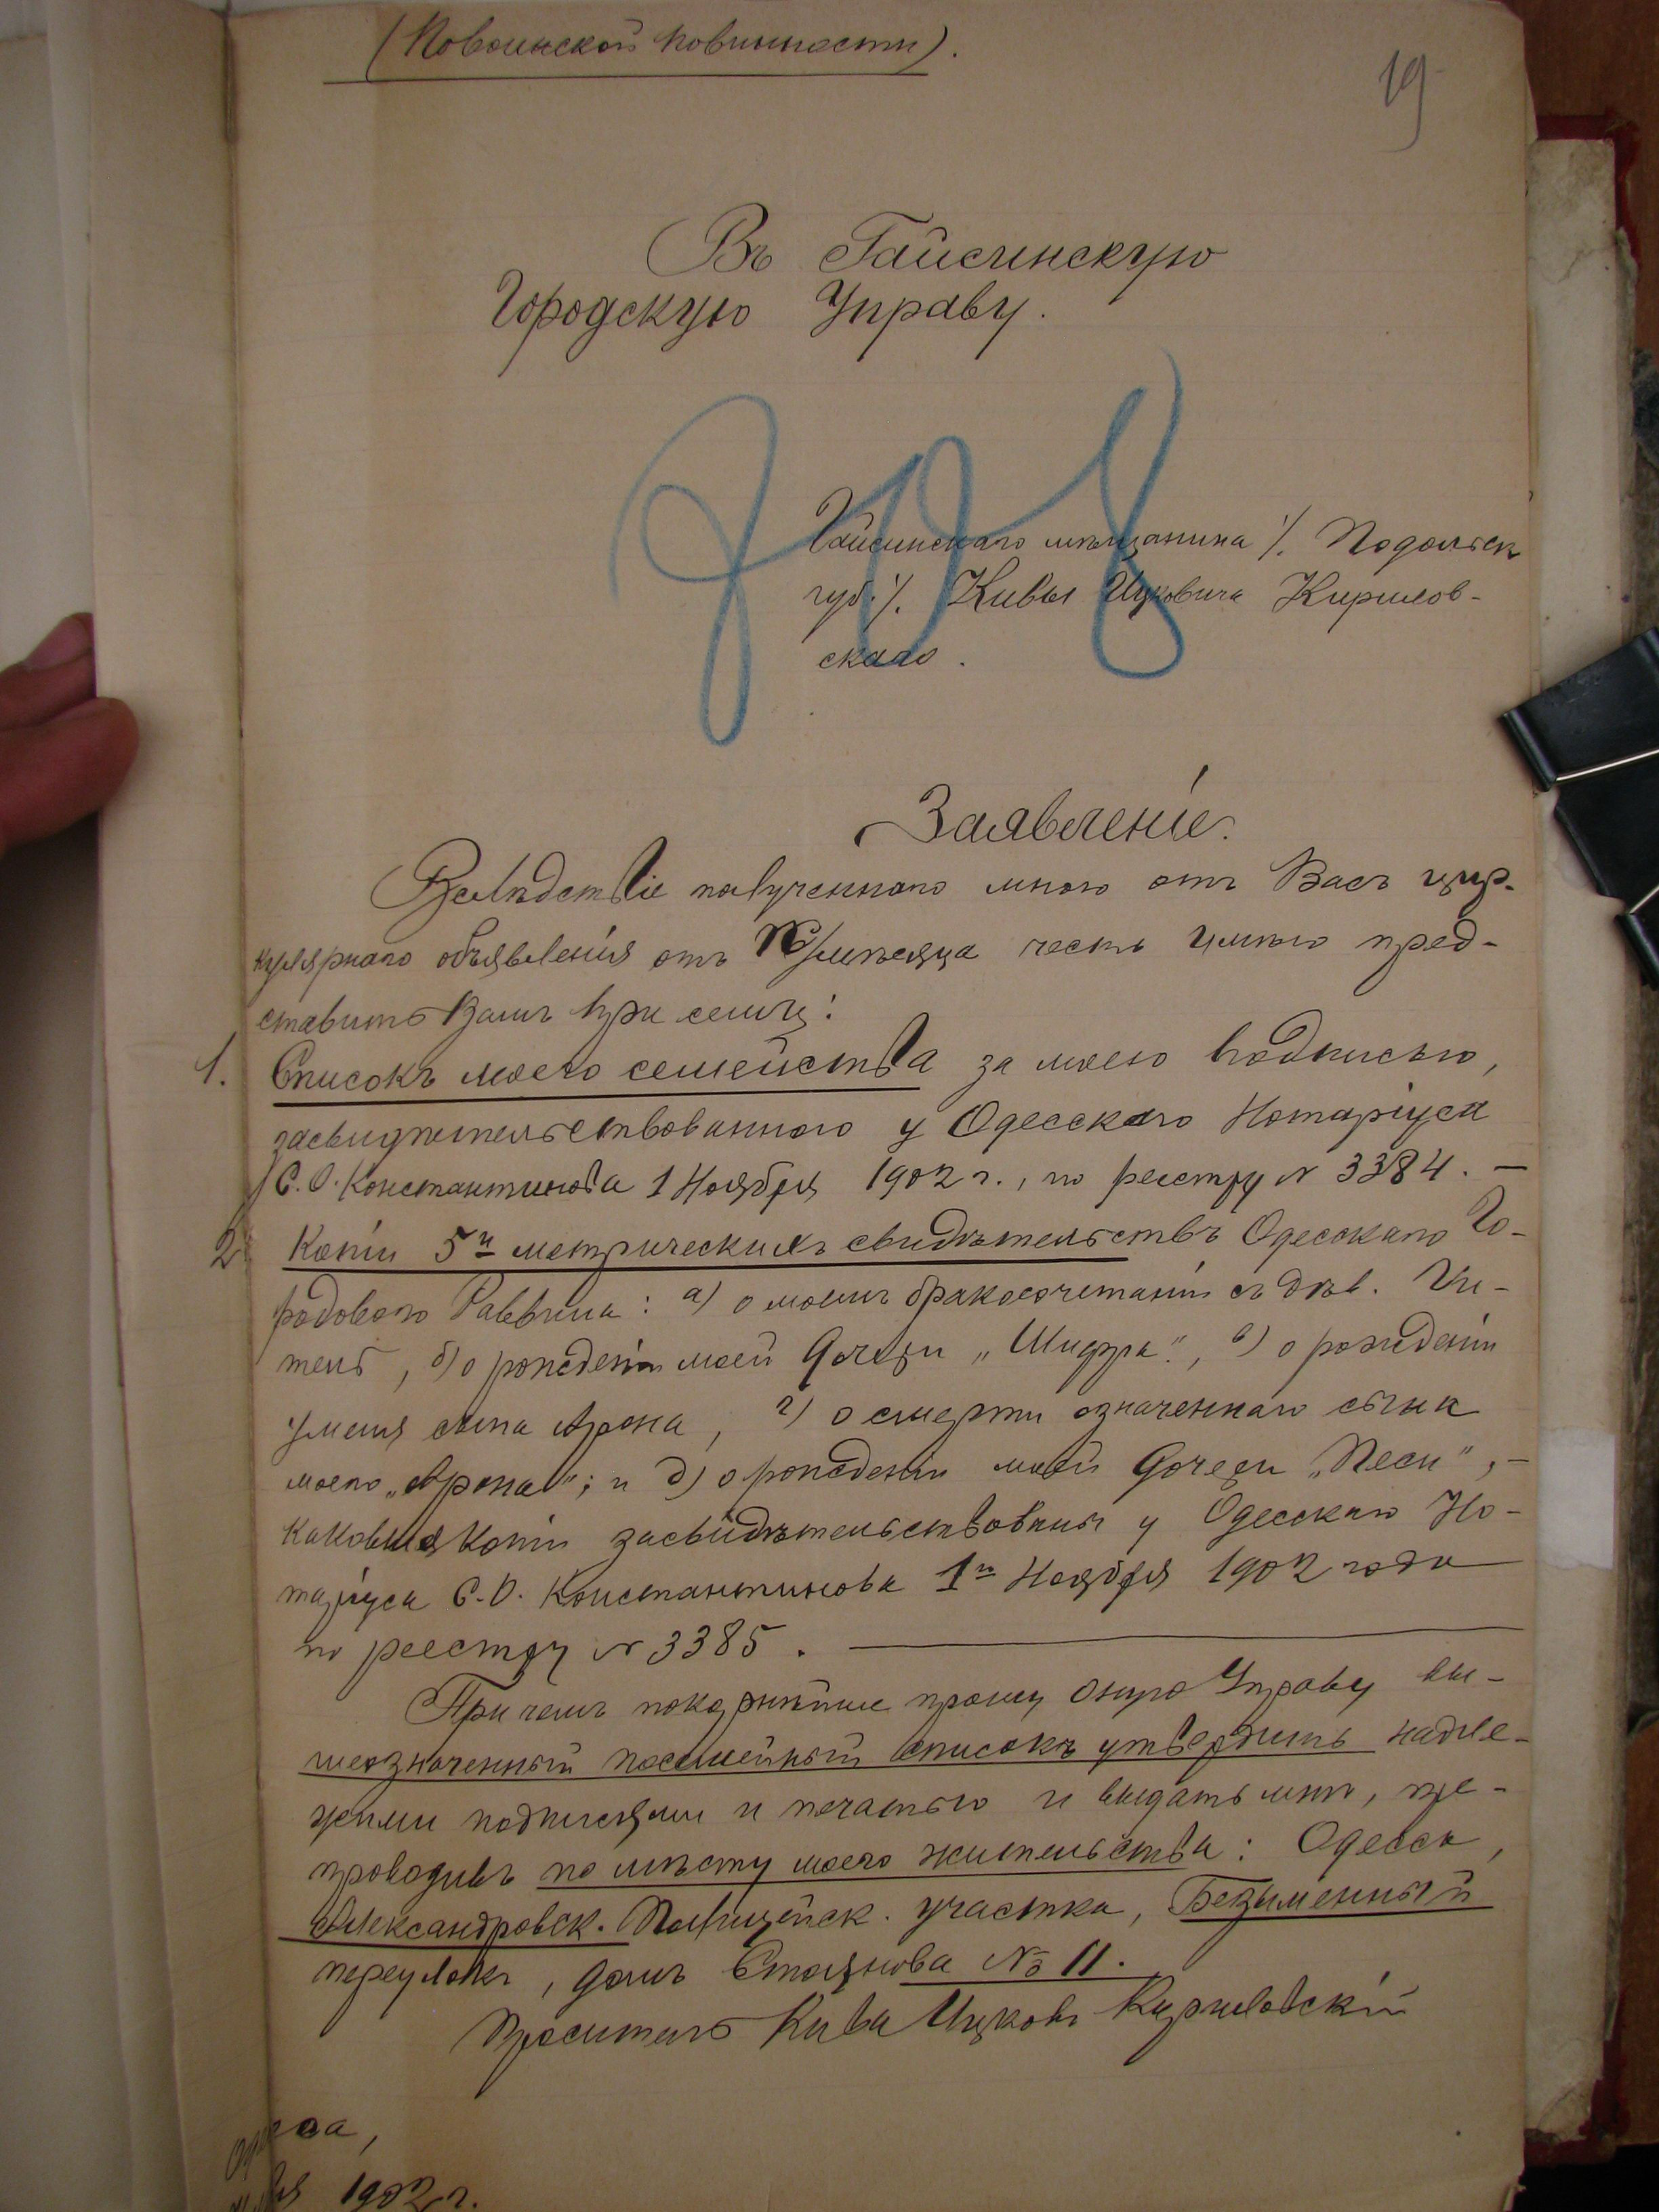 (По воинской повинности).
19
Въ Гайсинскую
Городскую Управу.
Гайсинскаго мѣщанина /. Подольск
губ. /. Кивы Ицковича Кирилов-
скаго.
Заявленіе.
Вслѣдствіе полученнаго мною отъ Васъ цир-
кулярнаго объявленія отъ мѣсяца честь имѣю пред-
ставить Вамъ при семъ:
1. Списокъ моего семейства за моею подписью,
засвидѣтельствованного у Одесскаго Нотаріуса
С. О. Константинова 1 Ноября 1902 г., по реестру N 3384. —
2. Копіи 5и метрическихъ свидѣтельствъ Одесскаго Го-
родового Раввина: а) о моемъ бракосочетаніи съ дѣв.
б) о рожденіи моей дочери „Шифра“, в) о рожденіи
у меня сына Арона, г) о смерти означеннаго сына
моего „Арона“; и д) о рожденіи моей дочери „Песи“, —
каковыя копіи засвидѣтельствованы у Одесскаго Но-
таріуса С. О. Константинова 1го Ноября 1902 года
по реестру N 3385. —
При чемъ покорнѣйше прошу оную Управу вы-
шеозначенный посемейный списокъ утвердить надле-
жими подписями и печатью и выдать мнѣ, пре-
проводивъ по мѣсту моего жительства: Одесса,
Александровск. Полицейск. участка, Безыменный
переулокъ, домъ Стоянова № 11.
Проситель Кива Ицковъ Кириловскій
Одесса,
1902 г.